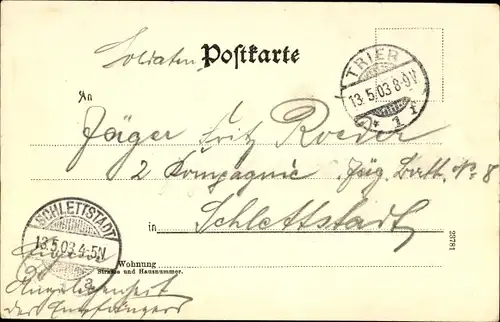 Soldaten Postkarte
TRIER
13.5.03 8-9V
* 1 f
An
Jäger Fritz Roeder
2 Kompagnie Jäg. Batt. No 8
in Schlettstadt
SCHLETTSTADT
13.5.03 4-5N
a
23781
Wohnung
Strasse und Hausnummer.
Eigene
Angelegenheit
des Empfängers